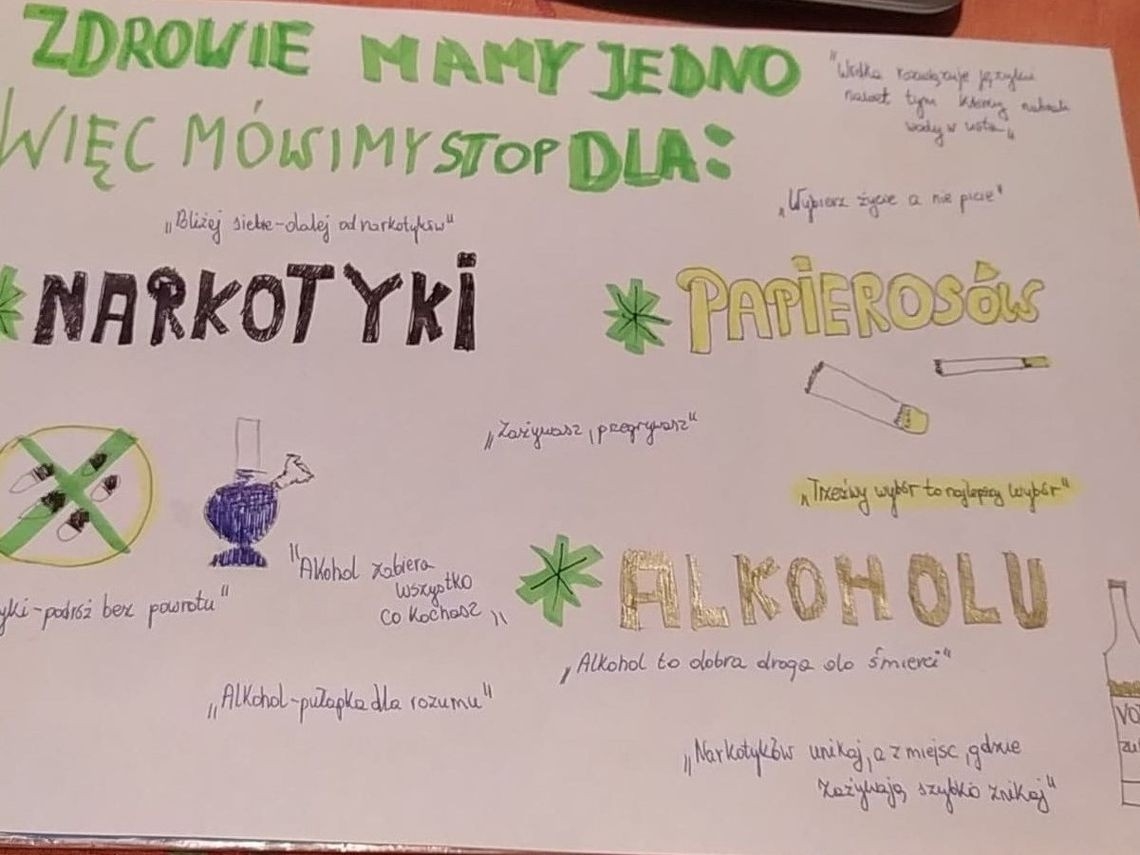 ZDROWIE MAMY JEDNO
WIĘC MÓWIMY STOP DLA:
"Wódka rozwiązuje języki
nawet tym którzy nabrali
wody w usta„
„Wybierz życie a nie picie"
„Bliżej siebie-dalej od narkotyków"
NARKOTYKI
PAPIEROSÓW
„Zażywasz, przegrywasz"
„Trzeźwy wybór to najlepszy wybór"
"Alkohol zabiera
wszystko
co kochasz„
ALKOHOLU
yki-podróż bez powrotu"
„Alkohol to dobra droga do śmierci"
„Alkohol-pułapka dla rozumu"
VO
„Narkotyków unikaj, a z miejsc, gdzie
zażywają, szybko znikaj"